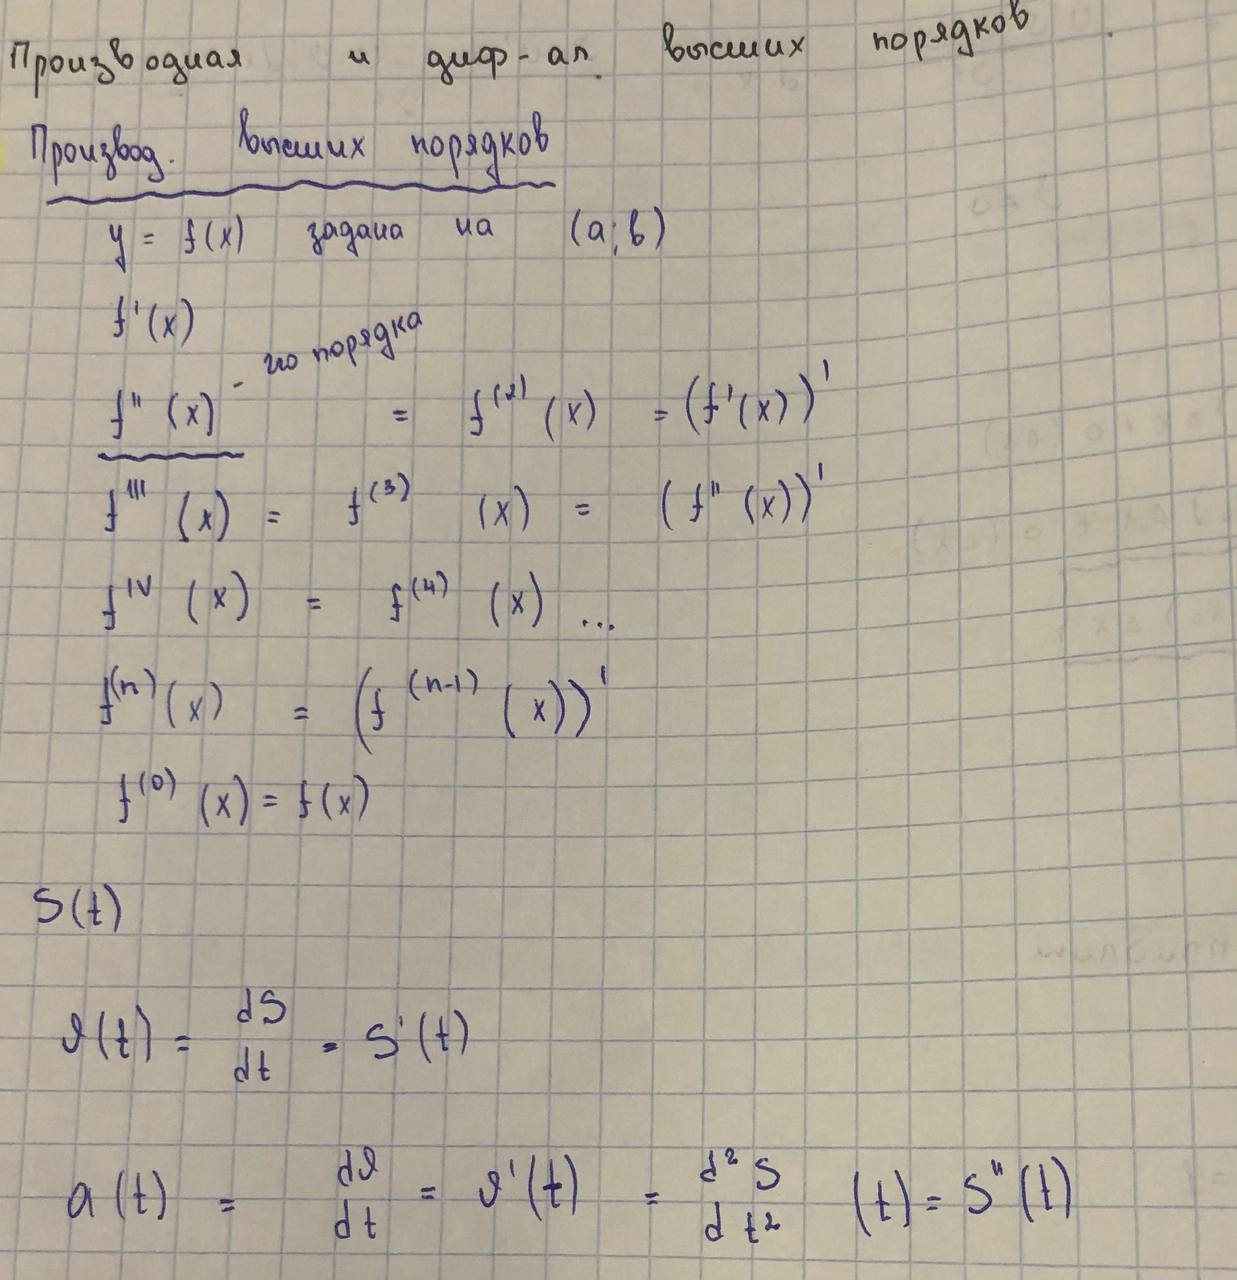 Производная и диф-ал высших порядков.
Производ. высших порядков
y = f(x) задана на (a;b)
f'(x)
f''(x) - 2го порядка = f⁽²⁾(x) = (f'(x))'
f'''(x) = f⁽³⁾(x) = (f''(x))'
f^IV(x) = f⁽⁴⁾(x) ...
f⁽ⁿ⁾(x) = (f⁽ⁿ⁻¹⁾(x))'
f⁽⁰⁾(x) = f(x)
S(t)
ϑ(t) = dS/dt = S'(t)
a(t) = dϑ/dt = ϑ'(t) = d²S/dt² (t) = S''(t)